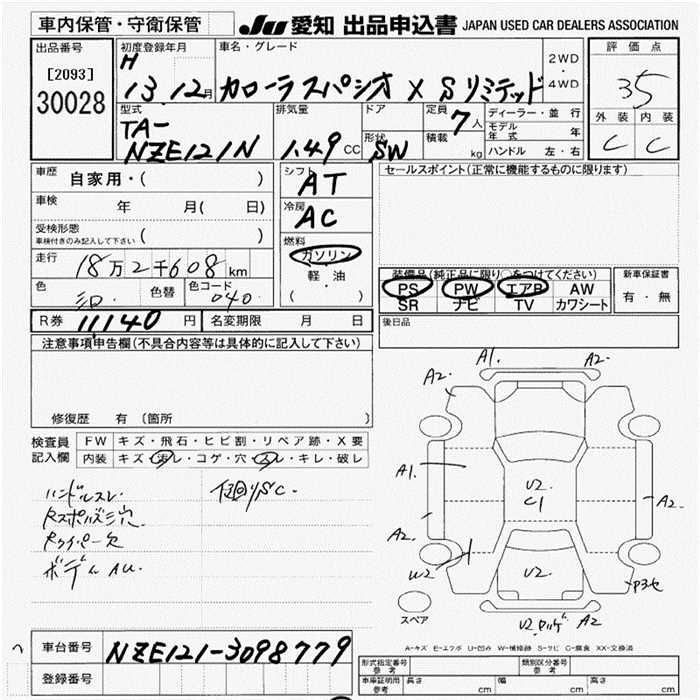 車内保管・守衛保管 JU 愛知 出品申込書 JAPAN USED CAR DEALERS ASSOCIATION
出品番号
[2093]
30028
初度登録年月
H
13 12月
車名・グレード
カローラスパシオ X Sリミテッド
2WD
・
4WD
評価点
35
外装 内装
C C
型式
TA-
NZE121N
排気量
1.49 CC
ドア
形状
SW
定員 7人
積載 kg
ディーラー・並行
モデル年式 年
ハンドル 左・右
車歴 自家用・( )
車検 年 月( 日)
受検形態
車検付きのみ記入して下さい ( )
走行 18万2千608km
色 色替 色コード 040
シフト AT
冷房 AC
燃料
ガソリン
・
軽・油
( )
セールスポイント(正常に機能するものに限ります)
装備品(純正品に限り○をつけてください)
PS PW エアB AW
SR ナビ TV カワシート
新車保証書
有・無
R券 11140円 名変期限 月 日
後日品
注意事項申告欄(不具合内容等は具体的に記入して下さい)
修復歴 有 〔箇所 〕
検査員
記入欄
FW キズ・飛石・ヒビ割・リペア跡・X要
内装 キズ・汚レ・コゲ・穴・スレ・キレ・破レ
ハンドルスレ
ボデーAU.
A1. A2.
A2.
A1.
U2
C1
A2.
A2.
W2
U2.
スペア
A2
A-キズ E-エクボ U-凹み W-補修跡 S-サビ C-腐食 XX-交換済
車台番号 NZE121-3098779
登録番号
形式指定番号
参考
類別区分番号
参考
車庫証明用
参考
長さ cm 幅 cm 高さ cm